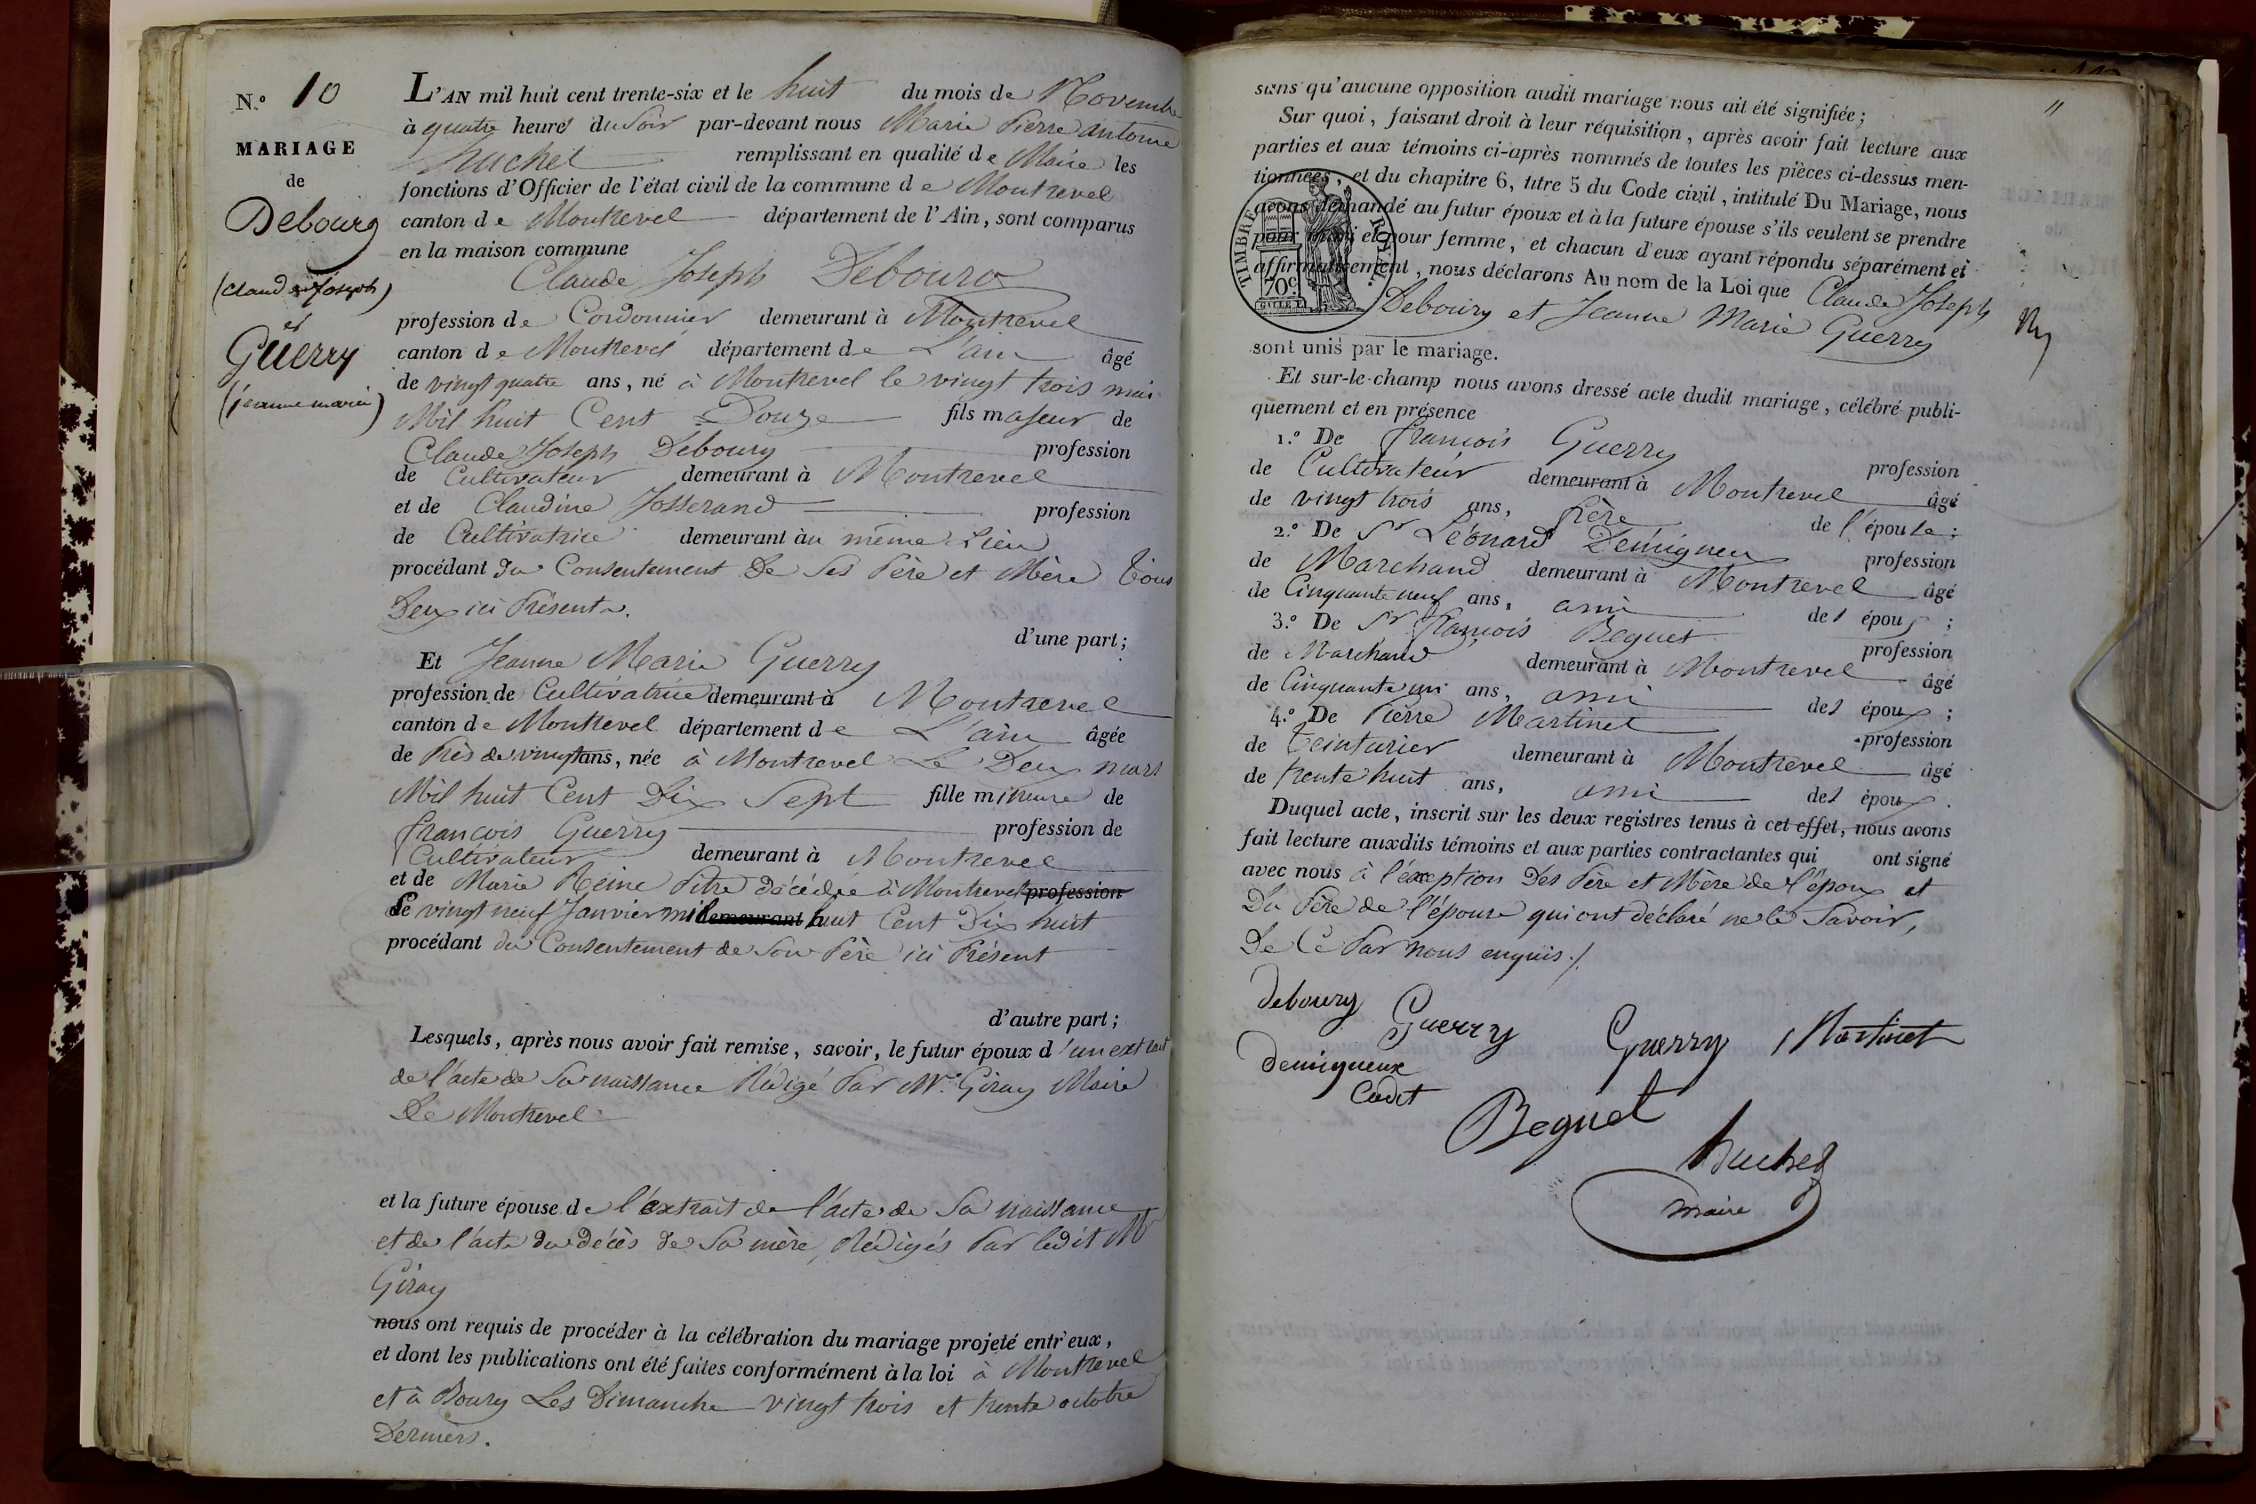 N.º 10
MARIAGE
de
Debourg
(Claude Joseph)
et
Guerry
(jeanne marie)
L'AN mil huit cent trente-six et le huit du mois de Novembre
à quatre heures du Soir par-devant nous Marie Pierre antoine
huchet remplissant en qualité de Maire les
fonctions d'Officier de l'état civil de la commune de Montrevel
canton de Montrevel département de l'Ain, sont comparus
en la maison commune
Claude Joseph Debourg
profession de Cordonnier demeurant à Montrevel
canton de Montrevel département de L'ain âgé
de vingt quatre ans, né à Montrevel le vingt trois mai
Mil huit Cent Douze fils majeur de
Claude Joseph Debourg profession
de Cultivateur demeurant à Montrevel
et de Claudine Josserand profession
de Cultivatrice demeurant au même Lieu
procédant du Consentement De Ses Père et Mère Tous
Deux ici Présents.
d'une part;
Et Jeanne Marie Guerry
profession de Cultivatrice demeurant à Montrevel
canton de Montrevel département de L'ain âgée
de Près de vingt ans, née à Montrevel Le Deux mars
Mil huit Cent Dix Sept fille mineure de
françois Guerry profession de
Cultivateur demeurant à Montrevel
et de Marie Reine Pitre décédée à Montrevel profession
Le vingt neuf Janvier mil demeurant huit Cent Dix huit
procédant du Consentement de Son Père ici Présent
d'autre part;
Lesquels, après nous avoir fait remise, savoir, le futur époux d'un extrait
de l'acte de Sa naissance Rédigé Par Mr. Giray Maire
De Montrevel
et la future épouse de l'extrait de l'acte de Sa naissance
et de l'acte du décès de Sa mère, Rédigés Par ledit Mr
Giray
nous ont requis de procéder à la célébration du mariage projeté entr'eux,
et dont les publications ont été faites conformément à la loi à Montrevel
et à Bourg Les Dimanche vingt trois et trente octobre
Derniers.
11
sans qu'aucune opposition audit mariage nous ait été signifiée;
Sur quoi, faisant droit à leur réquisition, après avoir fait lecture aux
parties et aux témoins ci-après nommés de toutes les pièces ci-dessus men-
tionnées, et du chapitre 6, titre 5 du Code civil, intitulé Du Mariage, nous
avons demandé au futur époux et à la future épouse s'ils veulent se prendre
pour mari et pour femme, et chacun d'eux ayant répondu séparément et
affirmativement, nous déclarons Au nom de la Loi que Claude Joseph
Debourg et Jeanne Marie Guerry
TIMBRE ROYAL.
70c.
sont unis par le mariage.
Et sur-le-champ nous avons dressé acte dudit mariage, célébré publi-
quement et en présence
1.º De françois Guerry profession
de Cultivateur demeurant à Montrevel âgé
de vingt trois ans, frère de l'épouse;
2.º De Sr Léonard Demigneux profession
de Marchand demeurant à Montrevel âgé
de Cinquante neuf ans, ami des époux;
3.º De Sr françois Beguet profession
de Marchand demeurant à Montrevel âgé
de Cinquante un ans, ami des époux;
4.º De Pierre Martinet profession
de teinturier demeurant à Montrevel âgé
de trente huit ans, ami des époux.
Duquel acte, inscrit sur les deux registres tenus à cet effet, nous avons
fait lecture auxdits témoins et aux parties contractantes qui ont signé
avec nous à l'exception Des Père et Mère de l'époux et
Du Père de l'épouse qui ont déclaré ne le Savoir,
De Ce Par nous enquis./.
debourg Guerry Guerry Martinet
demigneux
Cadet
Beguet
huchet
maire